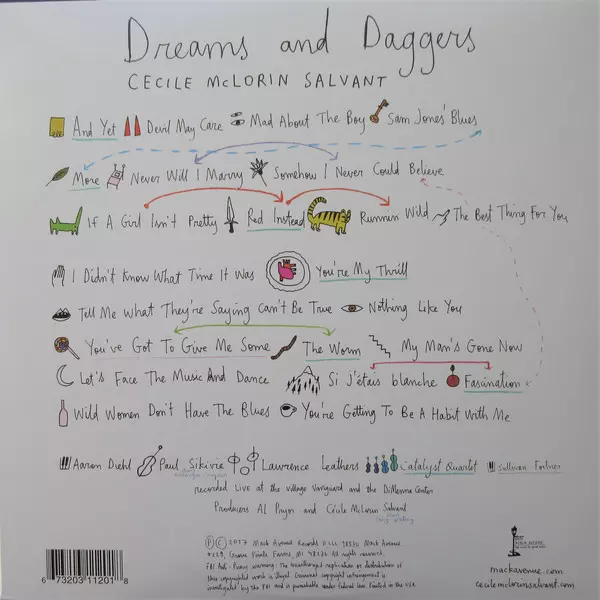 Dreams and Daggers
CECILE McLORIN SALVANT
And Yet Devil May Care Mad About The Boy Sam Jones' Blues
More Never Will I Marry Somehow I Never Could Believe
If A Girl Isn't Pretty Red Instead Runnin Wild The Best Thing For You
I Didn't Know What Time It Was You're My Thrill
Tell Me What They're Saying Can't Be True Nothing Like You
You've Got To Give Me Some The Worm My Man's Gone Now
Let's Face The Music And Dance Si j'étais blanche Fascination
Wild Women Don't Have The Blues You're Getting To Be A Habit With Me
Aaron Diehl Paul Sikivie Lawrence Leathers Catalyst Quartet Sullivan Fortner
recorded LIVE at the village Vanguard and the DiMenna Center
Producers AL Pryor and Cécile McLorin Salvant
Ⓟ © 2017 Mack Avenue Records II LLC 18530 Mack Avenue
#299, Grosse Pointe Farms, MI 48236 All rights reserved.
FBI Anti-Piracy warning: The unauthorized reproduction or distribution of
this copyrighted work is illegal. Criminal copyright infringement is
investigated by the FBI and is punishable under federal law. Printed in the USA
6 73203 11201 8
mackavenue.com
cecilemclorinsalvant.com